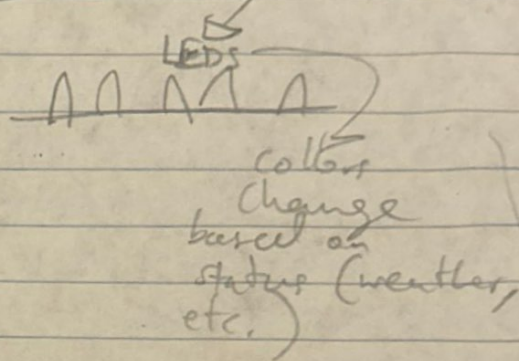 LEDs
colors
change
based on
status (weather,
etc.)